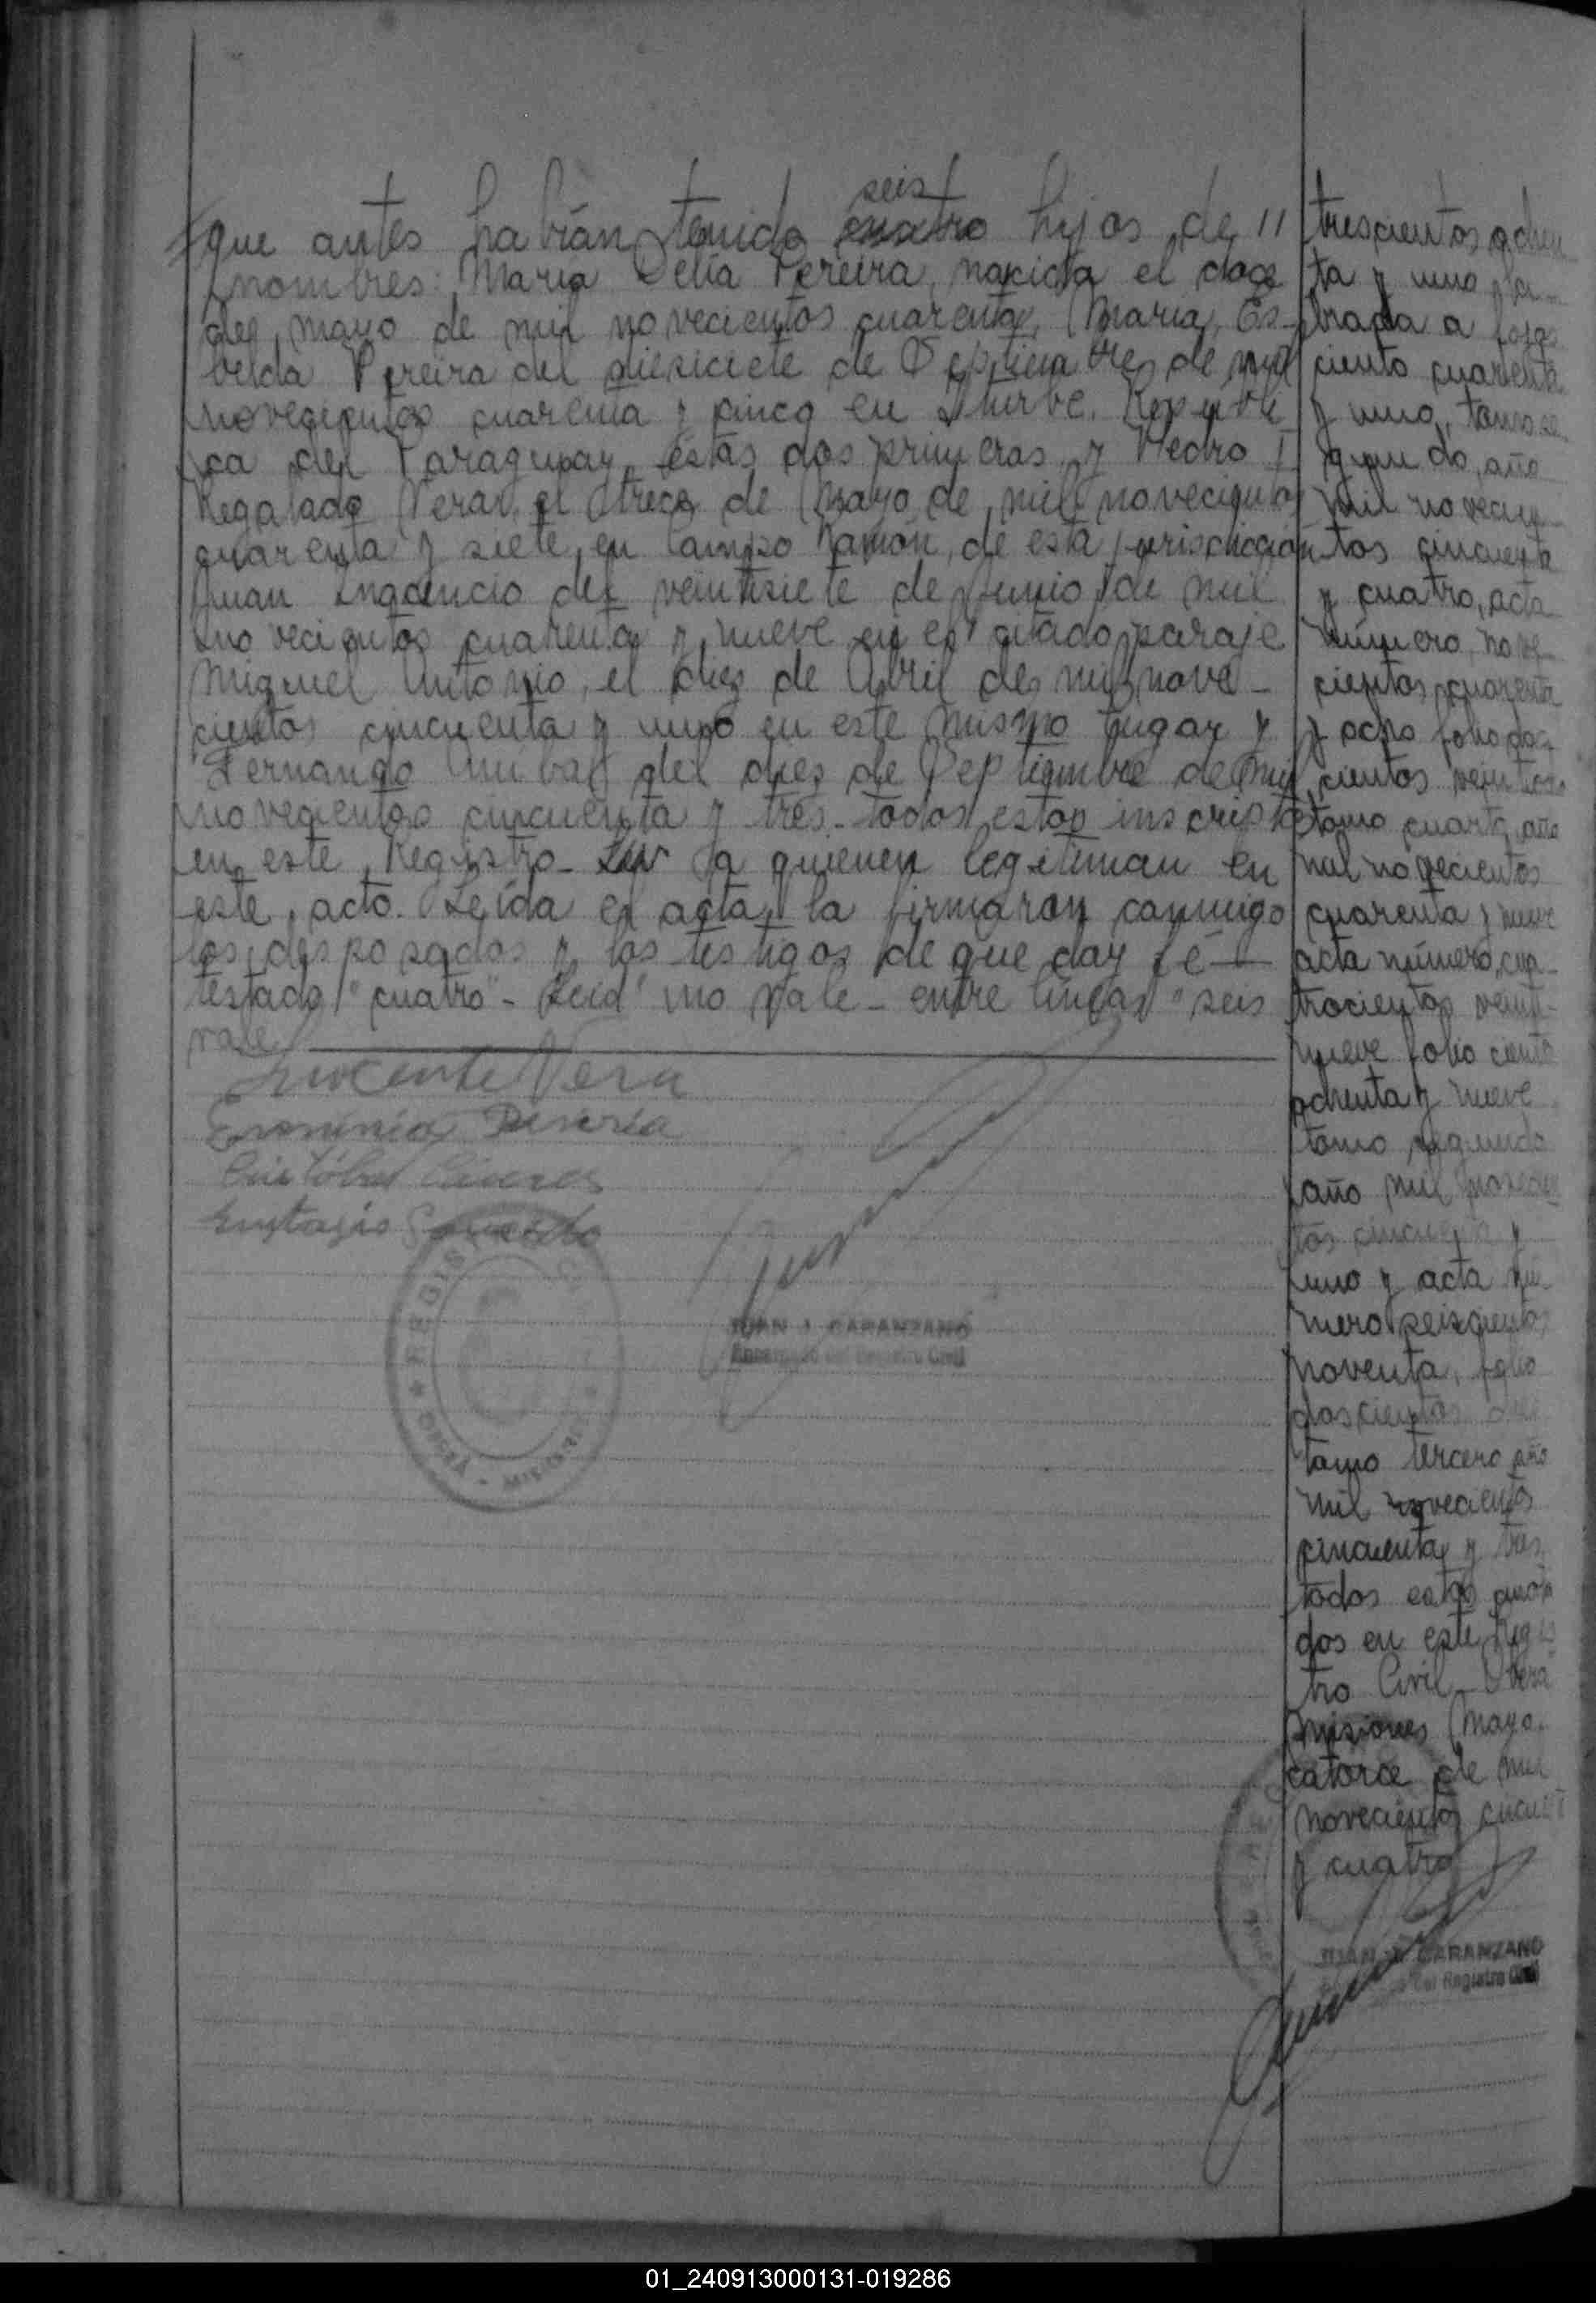 seis
que antes habían tenido cuatro hijos de "
nombres: María Delia Pereira, nacida el doce
del mayo de mil novecientos cuarenta, María Es-
belda Pereira del diesiciete de Septiembre de mil
novecientos cuarenta y cinco en Repúbli
ca del Paraguay, estas dos primeras y Pedro
Regalado Vera, el trece de Mayo de mil novecientos
cuarenta y siete, en Campo Ramón, de esta jurisdicción
Juan del veintisiete de Junio de mil
novecientos cuarenta y nueve en el citado paraje
Miguel Antonio, el diez de Abril de mil nove-
cientos cincuenta y uno en este mismo lugar y
Fernando del dies de Septiembre de mil
novecientos cincuenta y tres. todos estan inscriptos
en este Registro- a quienen legitiman en
este acto. Leída el acta, la firmaron conmigo
los desposados y los testigos de que doy fé
testado "cuatro" - no vale - entre líneas "seis
vale
Vera
Cristóbal
REGIST
OBERÁ - MISIONES
JUAN J. GARANZANO
Encargado del Registro Civil
trescientos ochen
ta y uno la-
brada a fojas
ciento cuarenta
y uno, tomo se-
gundo, año
mil novecien
tos cincuenta
y cuatro, acta
número nove-
cientos cuarenta
y ocho folio dos
cientos
tomo cuarto, año
mil novecientos
cuarenta y nueve
acta número cua-
trocientos veinti-
nueve folio ciento
ochenta y nueve
tomo segundo
año mil novecien
tos cincuenta y
uno y acta nú-
mero seiscientos
noventa, folio
doscientos
tomo tercero año
mil novecientos
cincuenta y tres
todos estos
dos en este Regis
tro Civil- Oberá
Misiones Mayo
catorce de mil
novecientos cincuent
y cuatro
JUAN J. GARANZANO
del Registro Civil
01_240913000131-019286